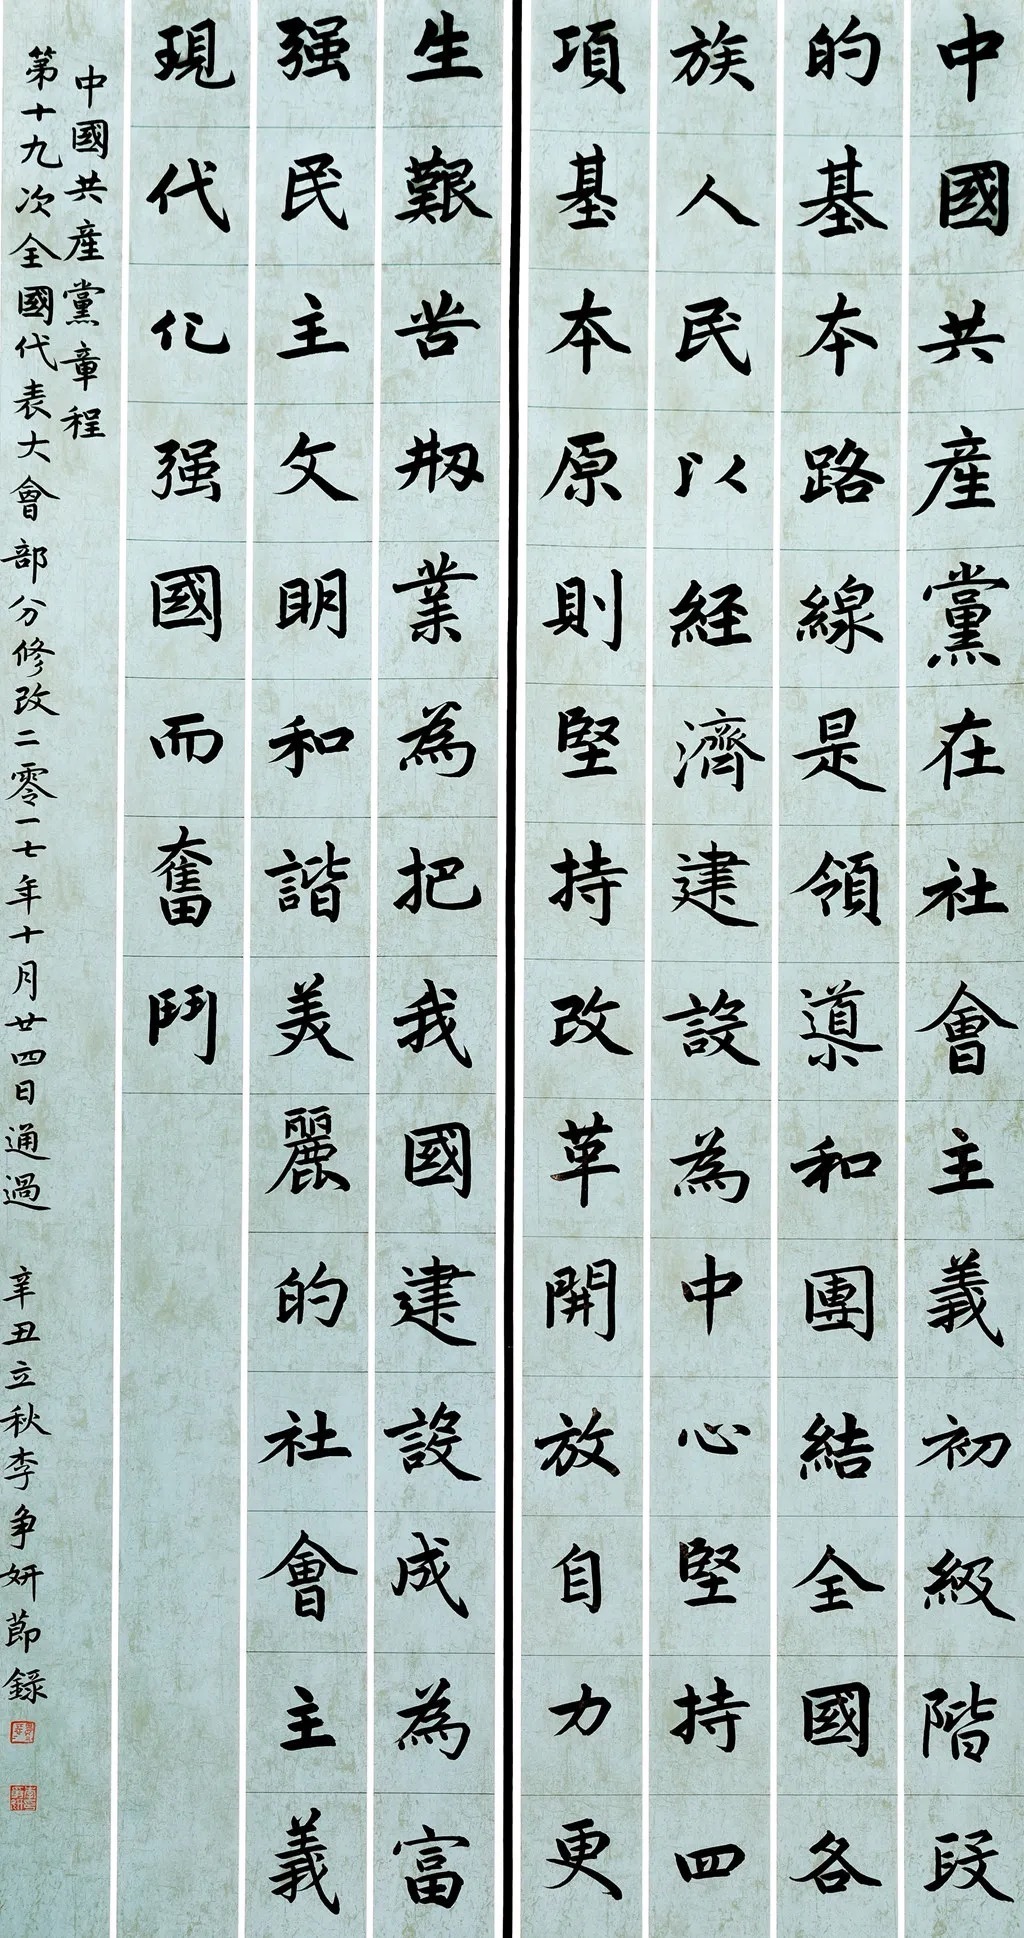 中國共産黨在社會主義初級階段
的基本路線是領導和團結全國各
族人民以經濟建設為中心堅持四
項基本原則堅持改革開放自力更
生艱苦剏業為把我國建設成為富
强民主文明和諧美麗的社會主義
現代化强國而奮鬥
中國共産黨章程
第十九次全國代表大會部分修改二零一七年十月廿四日通過 辛丑立秋李争妍節録